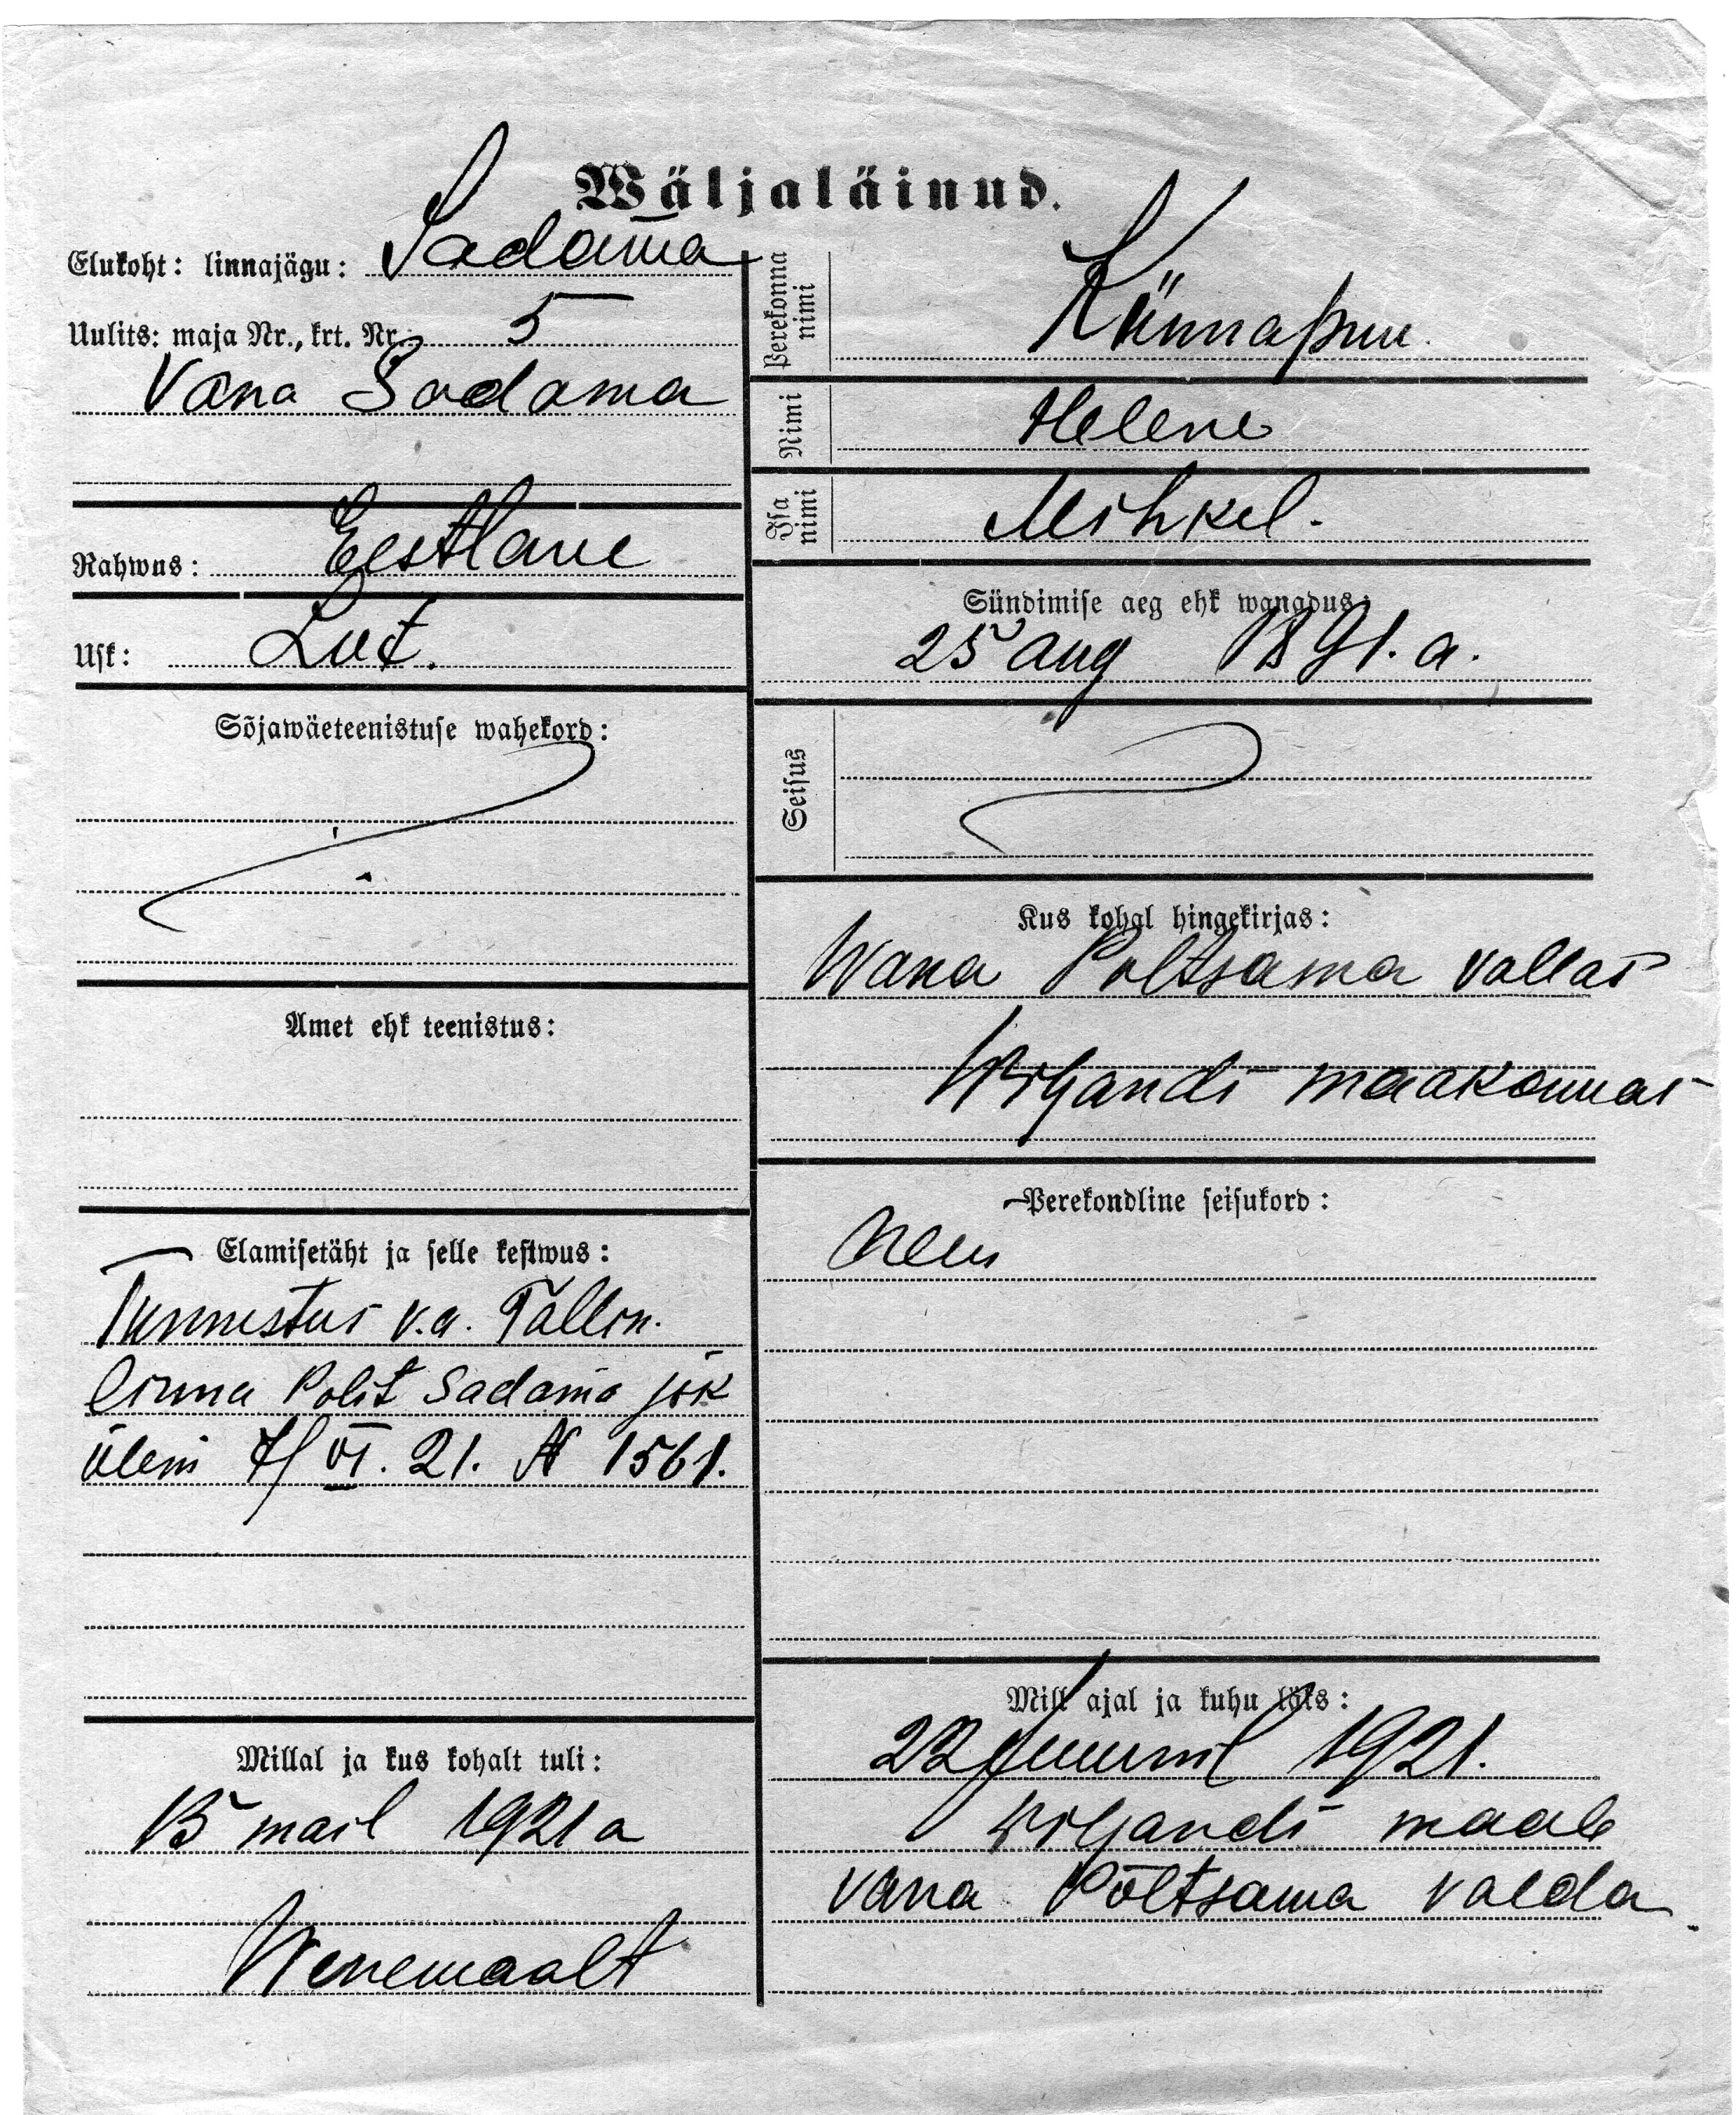 Wäljaläinud.
Elukoht: linnajägu: Sadama
Uulits: maja Nr., krt. Nr. 5
Vana Sadama
Rahwus: Eestlane
Usk: Lut.
Sõjawäeteenistuse wahekord:
Amet ehk teenistus:
Elamisetäht ja selle kestwus:
Tunnistus v.a. Tallin.
linna Polit Sadama jsk
ülem 7/VI. 21. N 1561.
Millal ja kus kohalt tuli:
15 mail 1921 a
Wenemaalt
Perekonna nimi Künnapuu.
Nimi Helene
Isa nimi Mihkel.
Sündimise aeg ehk wanadus:
25 aug 1891. a.
Seisus
Kus kohal hingekirjas:
Wana Poltsama vallas
Wiljandi maakonnas
Perekondline seisukord:
Mill ajal ja kuhu läks:
22 Juunil 1921.
Wiljandi maale
vana Põltsama valda